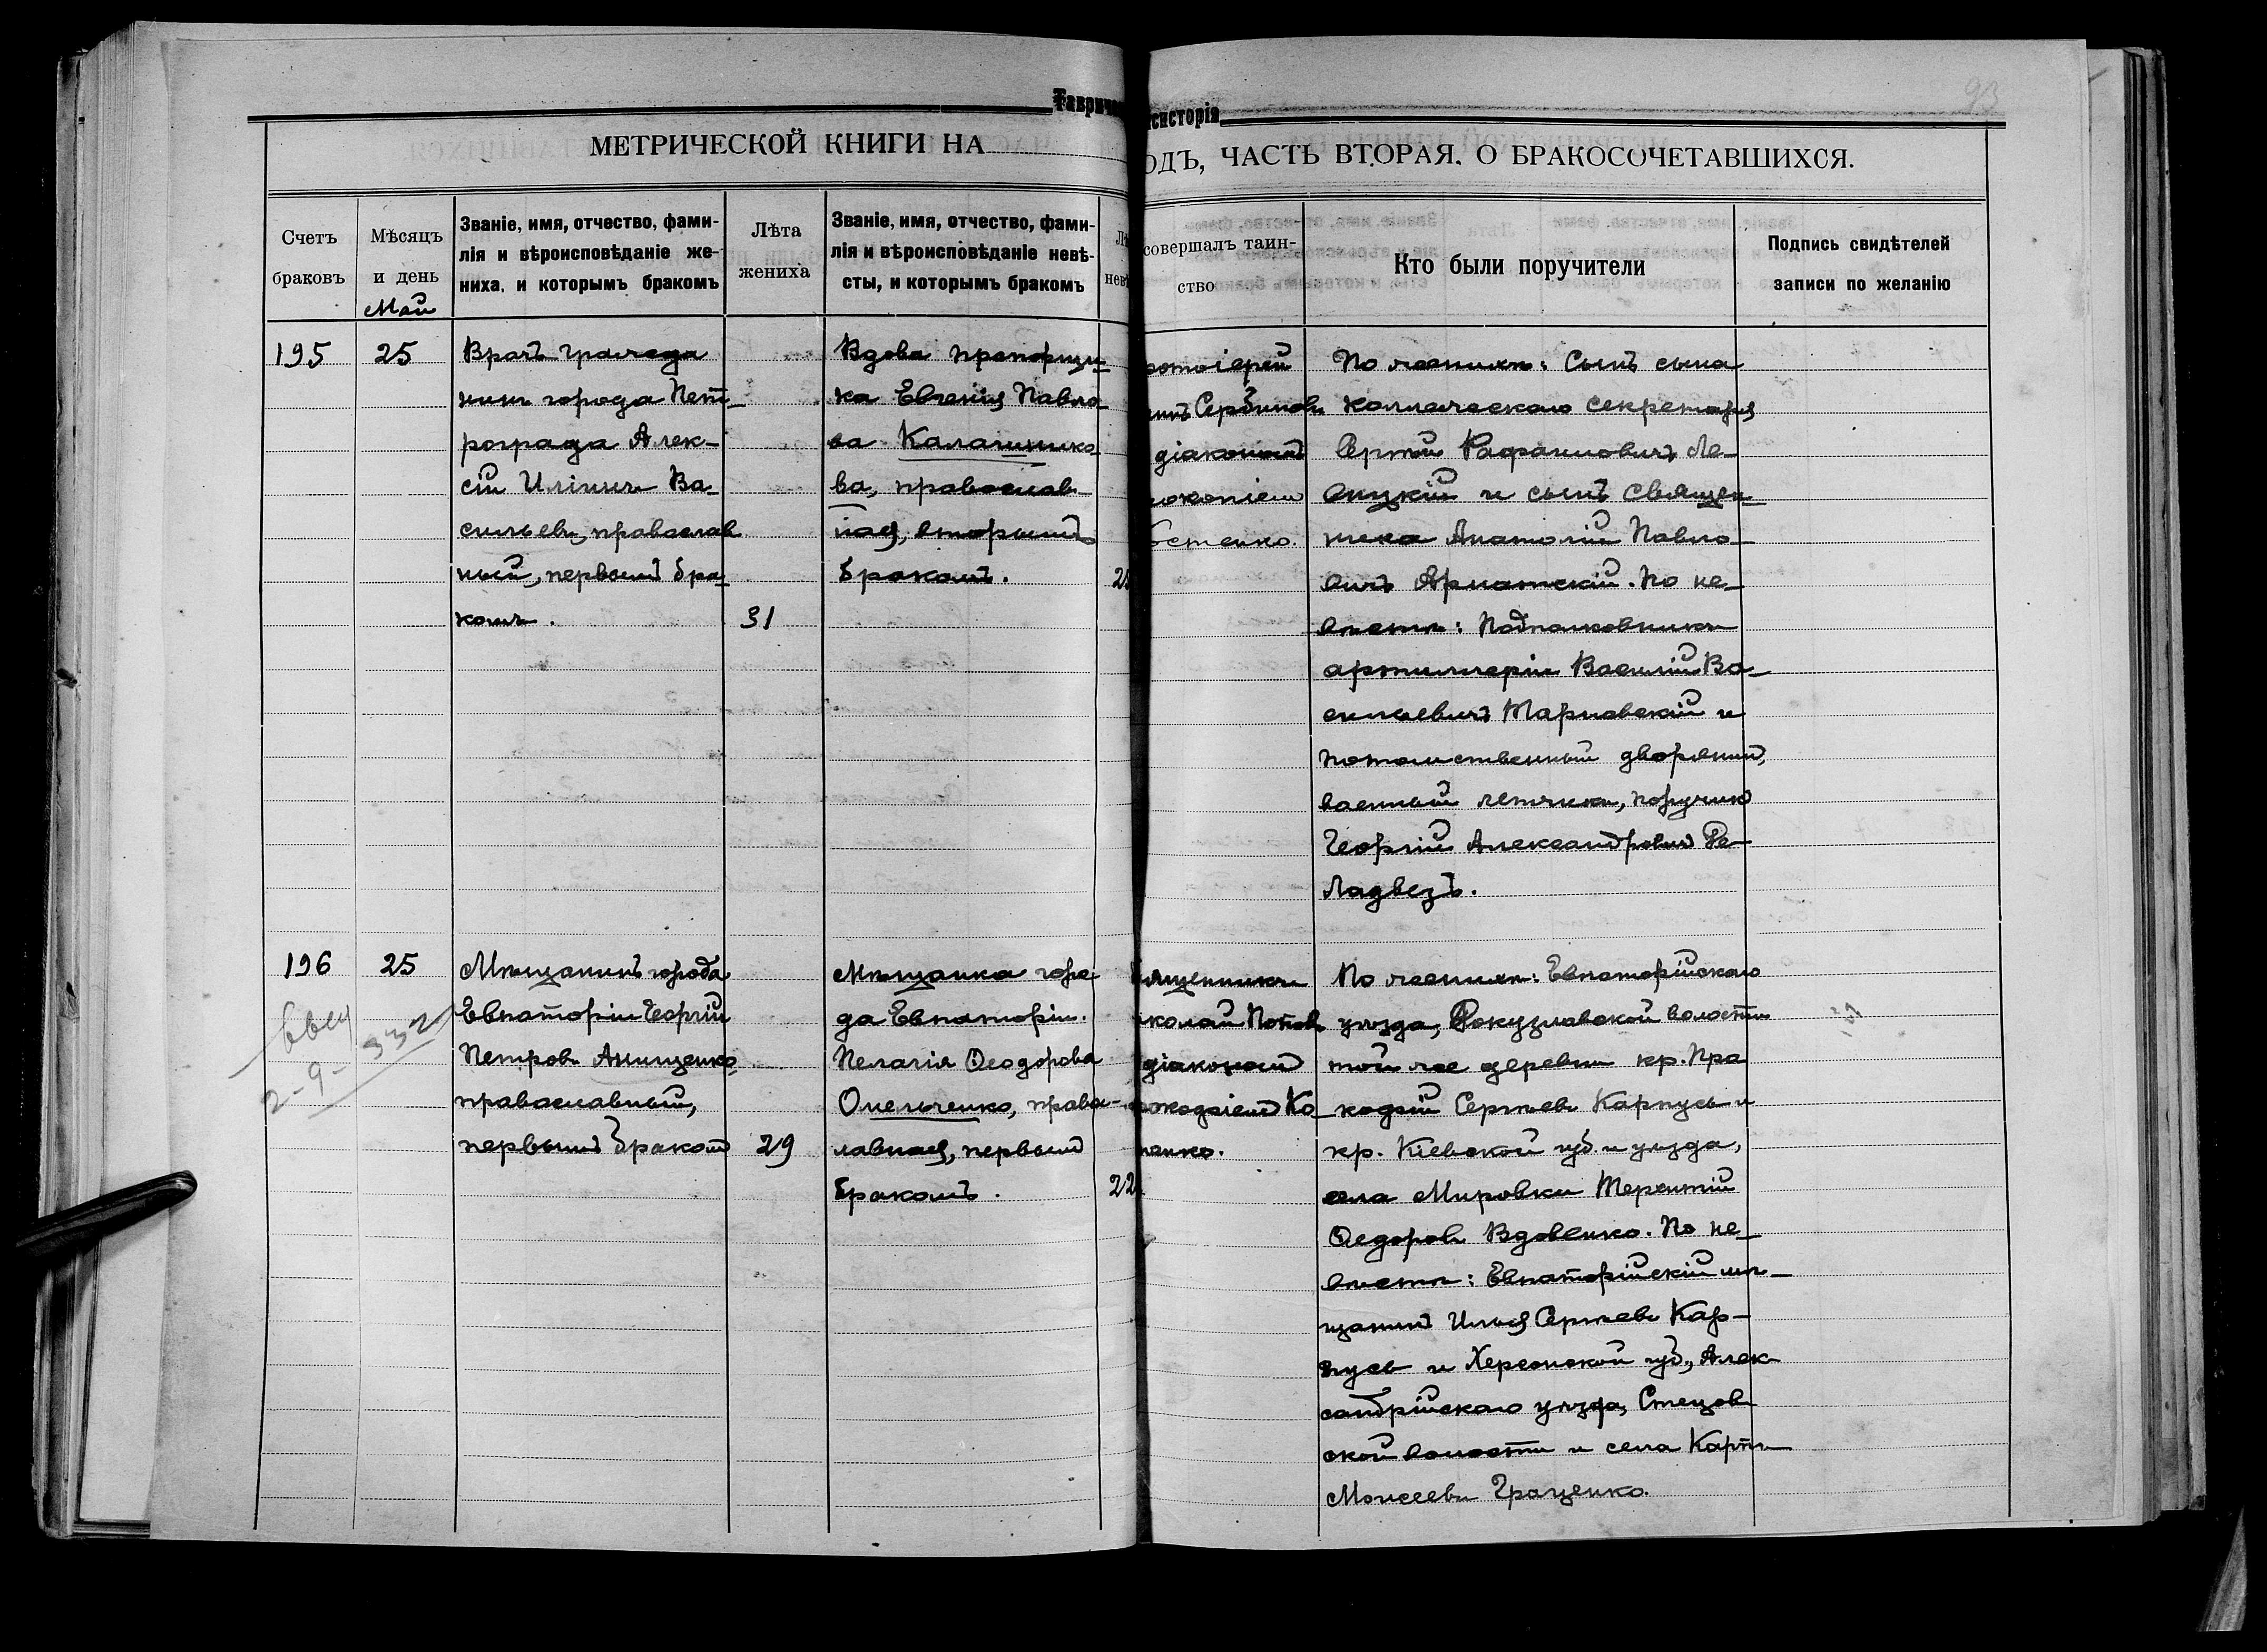 93
Тавриче
нсисторія
МЕТРИЧЕСКОЙ КНИГИ НА
ОДЪ, ЧАСТЬ ВТОРАЯ, О БРАКОСОЧЕТАВШИХСЯ.
Счетъ
браковъ
Мѣсяцъ
и день
Май
Званіе, имя, отчество, фами-
лія и вѣроисповѣданіе же-
ниха, и которымъ бракомъ
Лѣта
жениха
Званіе, имя, отчество, фами-
лія и вѣроисповѣданіе невѣ-
сты, и которымъ бракомъ
Лѣ
невѣ
совершалъ таин-
ство
Кто были поручители
Подпись свидѣтелей
записи по желанію
195
25
Врачъ гражда
нинъ города Пет-
рограда Алек-
сѣй Иліинъ Ва-
сильевъ, православ
ный, первымъ бра-
комъ.
31
Вдова прапорщи-
ка Евгенія Павло-
ва Калашнико-
ва, православ-
ная, вторымъ
бракомъ.
2
отоіерей
инъ Сербиновъ
діакономъ
окопіем
бетенко.
По женихѣ: Сынъ сына
коллежскаго секретаря
Сергѣй Рафаиловичъ Ле-
вицкій и сынъ священ-
ника Анатолій Павло-
вичъ Арнатскій. По не-
вѣстѣ: Подполковникъ
артиллеріи Василій Ва-
сильевичъ Тарновскій и
потомственный дворянинъ,
военный летчикъ, поручикъ
Георгій Александровичъ Ре-
Ладвезъ.
196
25
332
2-9-
Мѣщанинъ города
Евпаторіи Георгій
Петровъ Анищенко,
православный,
первымъ бракомъ
29
Мѣщанка горо-
да Евпаторіи.
Пелагія Ѳеодорова
Омельченко, право-
лавная, первымъ
бракомъ.
22
ященникъ
колай Поповъ
діакономъ
окодзіемъ Ко-
ненко.
По женихѣ: Евпаторійскаго
уѣзда, Рокузлавской волости
той же деревни кр. Пра
кофій Сергѣевъ Карпусь и
кр. Кіевской губ. и уѣзда,
села Мировки Терентій
Ѳедоровъ Вдовенко. По не-
вѣстѣ: Евпаторійскій мѣ-
щанинъ Илья Сергѣевъ Кар-
пусь и Херсонской губ., Алек-
сандрійскаго уѣзда, Стецов-
ской волости и села Карпъ
Моисеевъ Граценко.